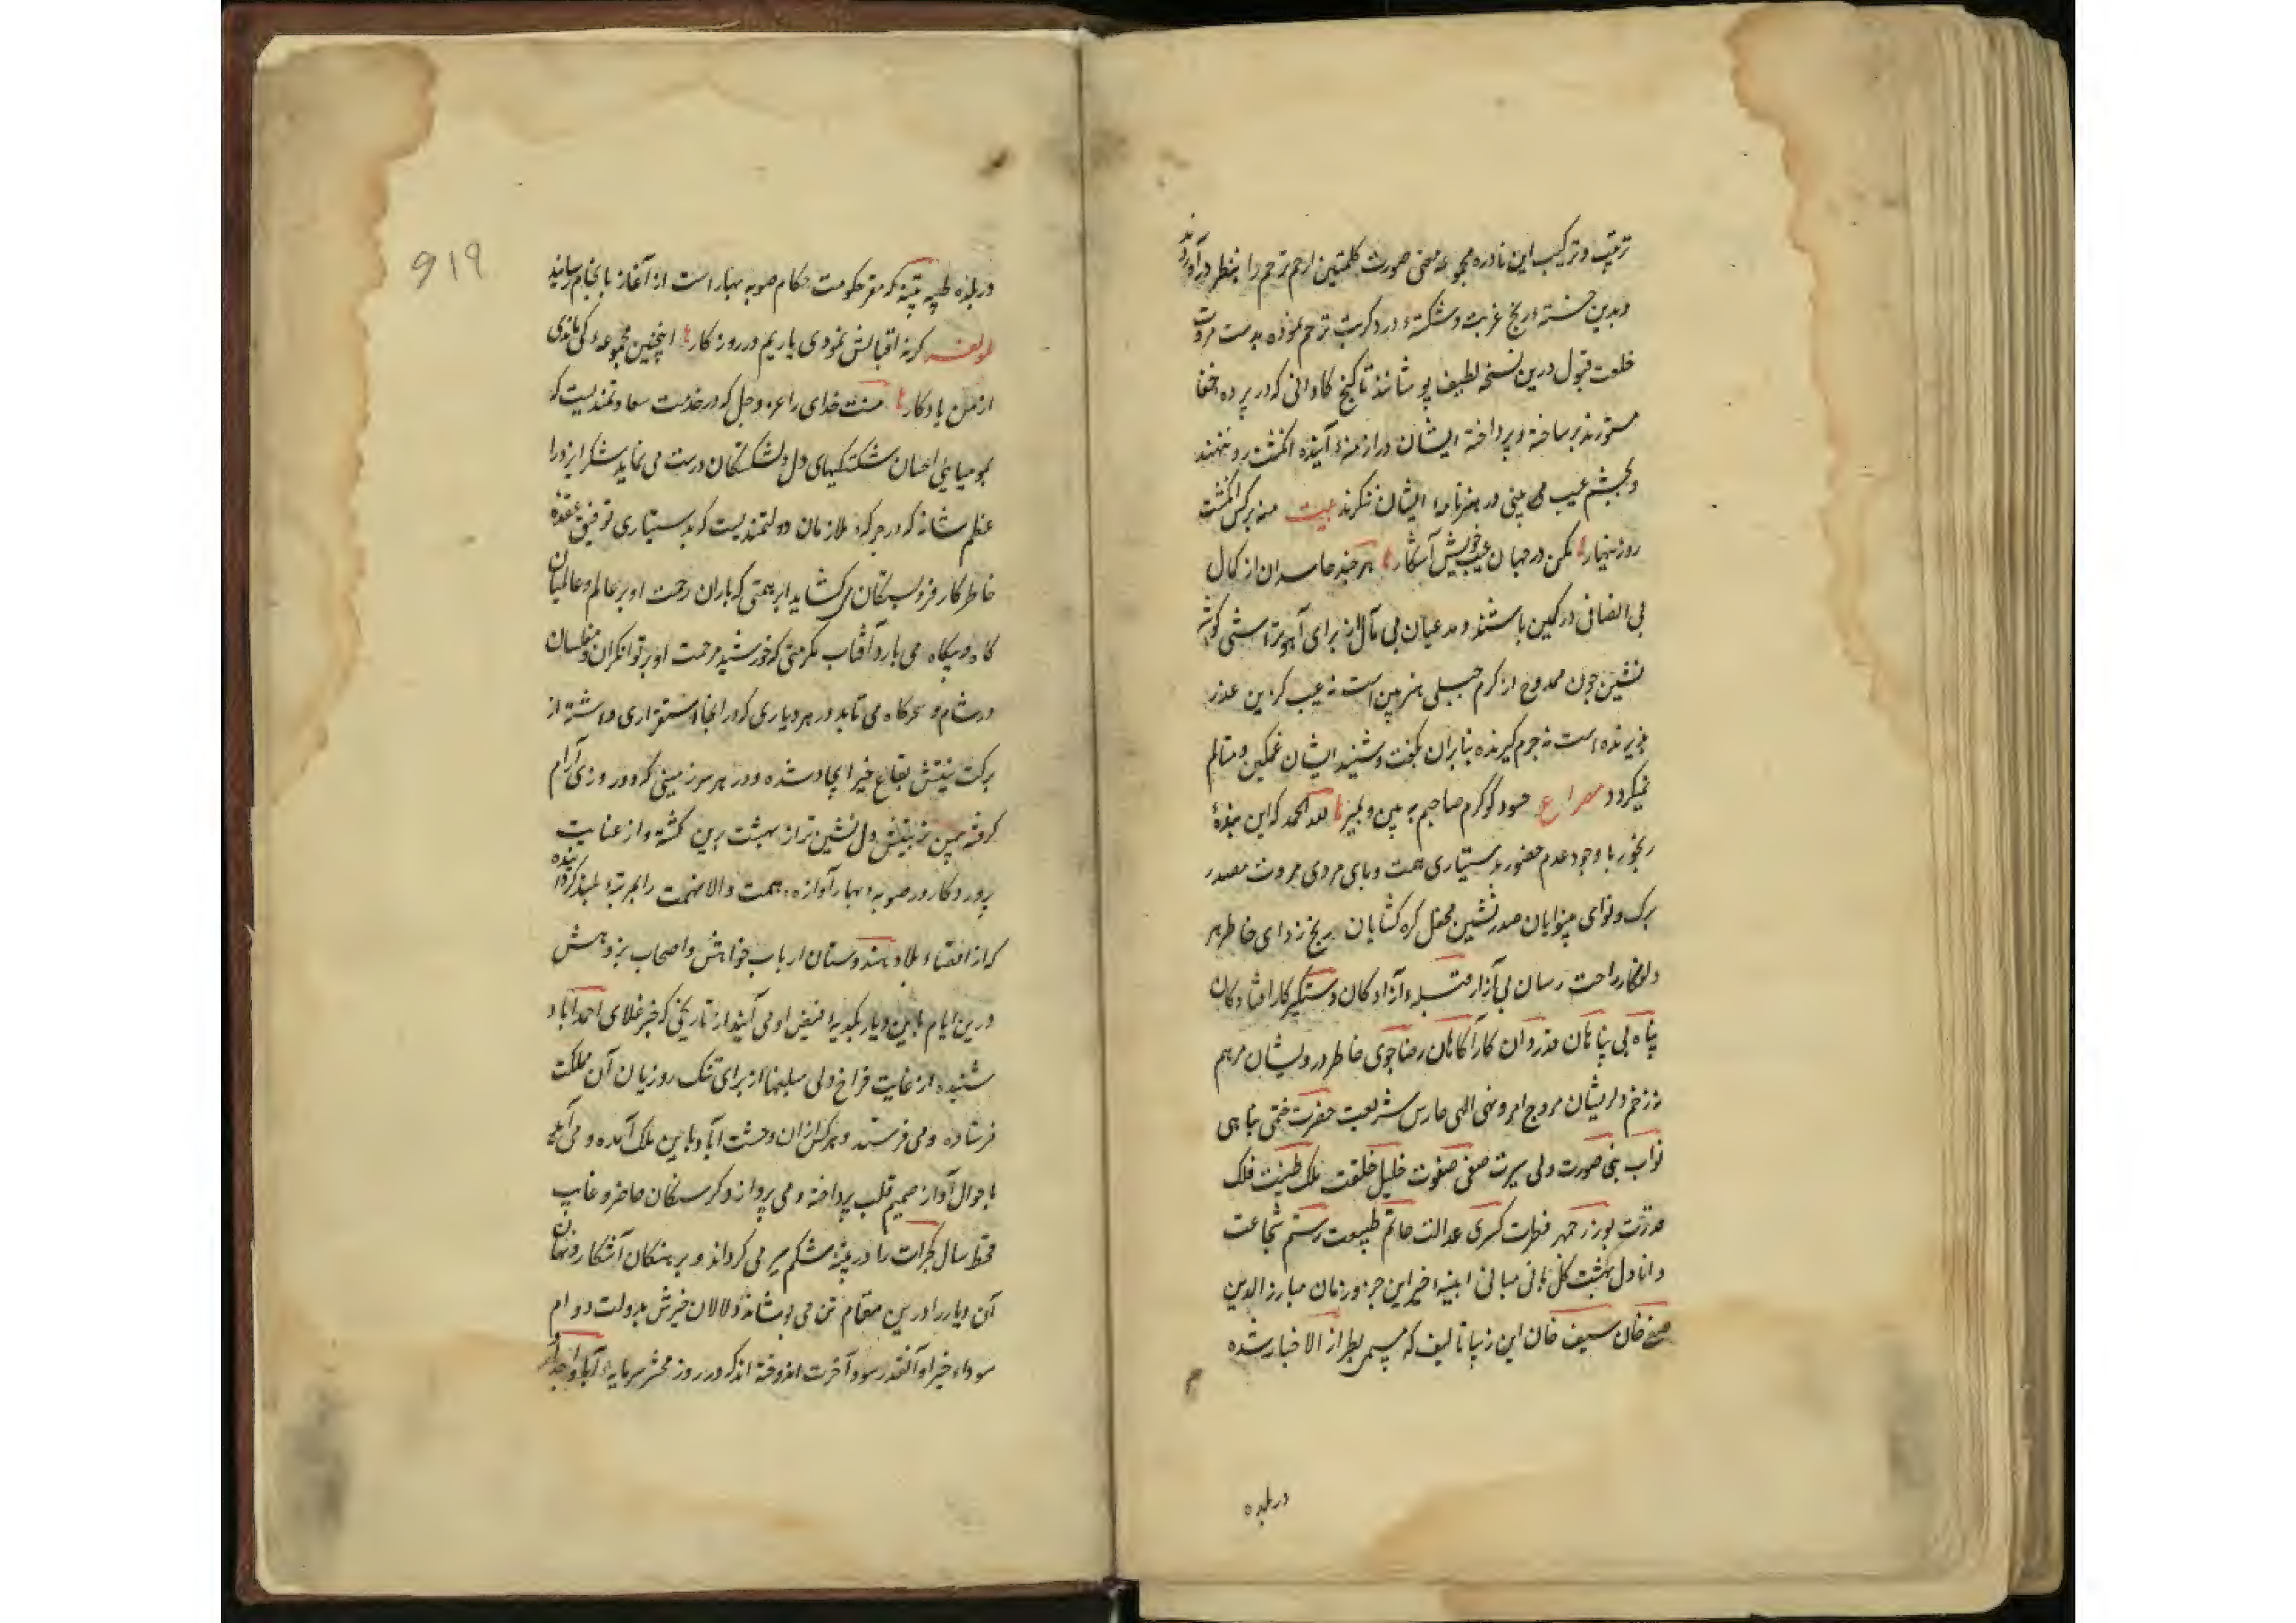 ترتیب و ترکیب این نادره مجموعه معنی صورت کلمتین ارحم ترحم را بنظر درآورند
و بدین خسته رنج غربت و شکسته درد کربت ترحم نموده بدست مروت
خلعت قبول درین نسخه لطیف پوشانند تا گنج کاوانی که در پرده اخفا
مستورند بر ساخته و پرداخته ایشان در ازمنه آینده انگشت رد ننهند
و بچشم عیب بینی در هنرنامه ایشان ننگرند بیت منه بر کس انگشت
رد زینهار مکن در جهان عیب خویش آشکار هر چند حاسدان از کمال
بی انصافی در کمین باشند و مدعیان بی مآل از برای آهو تراشی گوشه
نشین چون ممدوح از کرم جبلی هنر بین است نه عیب گزین عذر
پذیرنده است نه جرم گیرنده بنابران بگفت و شنید ایشان غمگین و متالم
نمیگردد مصراع حسود گو کرم صاحبم به بین و بمیر لله الحمد که این بنده
رنجور با وجود عدم حضور بدستیاری همت و پای مردی مروت مصدر
برک و نوای بینوایان صدرنشین محفل کره کشایان رنج زدای خاطر هر
دلفکار راحت رسان بی آزار قبله آزادکان دستگیر کار افتادکان
پناه بی پناهان قدردان کارآکاهان رضاجوی خاطر درویشان مرهم
نه زخم دلریشان مروج امر و نهی الهی حارس شریعت حضرت ختمی پناهی
نواب نبی صورت ولی سیرت صفی صفوت خلیل خلقت ملک طینت فلک
قدرت بوزرجمهر فطرت کسری عدالت حاتم طبیعت رستم شجاعت
دانا دل بهشت کل بانی مبانی ابنیه خیر این جزو زمان مبارز الدین
صفی خان سیف خان این زیبا تالیف که مسمی بطراز الاخبار شده
در بلده
919
در بلده طیبه پتنه که مقر حکومت حکام صوبه بهار است از آغاز بانجام رسانید
لمولفه کر نه اقبالش نمودی یاریم در روزکار اینچنین مجموعه کی ماندی
از من یادکار منت خدای را عز و جل که در خدمت سعادتمندیست که
بمومیایی احسان شکستکیهای دل دلشکستکان درست می نماید شکر ایزد را
عظم شانه که در جرکه ملازمان دولتمندیست که بدستیاری توفیق عقده
خاطر کار فروبستکان می کشاید ابر همتی که باران رحمت او بر عالم و عالمیان
کاه و بیکاه می بارد آفتاب مکرمتی که خورشید مرحمت او بر توانکران و مفلسان
در شام و سحرکاه می تابد در هر دیاری که در انجا استقراری داشته از
برکت نیتش بقاع خیر ایجاد شده و در هر سرزمینی که دو روزی آرام
کرفته بیمن تربیتش دل نشین تر از بهشت برین کشته و از عنایت
پروردکار در صوبه بهار آوازه همت والا نهمت را بمرتبه بلند کردانیده
که از اقصاء بلاد هندوستان ارباب خواهش و اصحاب پژوهش
درین ایام باین دیار بکدیه فیض او می آیند از تاریخی که خبر غلای احمدآباد
شنیده از غایت فراخ دلی مبلغها از برای تنک روزیان آن مملکت
فرستاده و می فرستد و هر کس ازان وحشت آباد باین ملک آمده و می آید
باحوال آو از صمیم قلب پرداخته و می پردازد و کرسنکان حاضر و غایب
قحط سال کجرات را در پتنه شکم سیر می کرداند و برهنکان آشکار و نهان
آن دیار را درین مقام تن می پوشاند دلالان خیرش بدولت دوام
سوداء خیر او آنقدر سود آخرت اندوخته اند که در روز محشر سرمایه آبا و اجداد